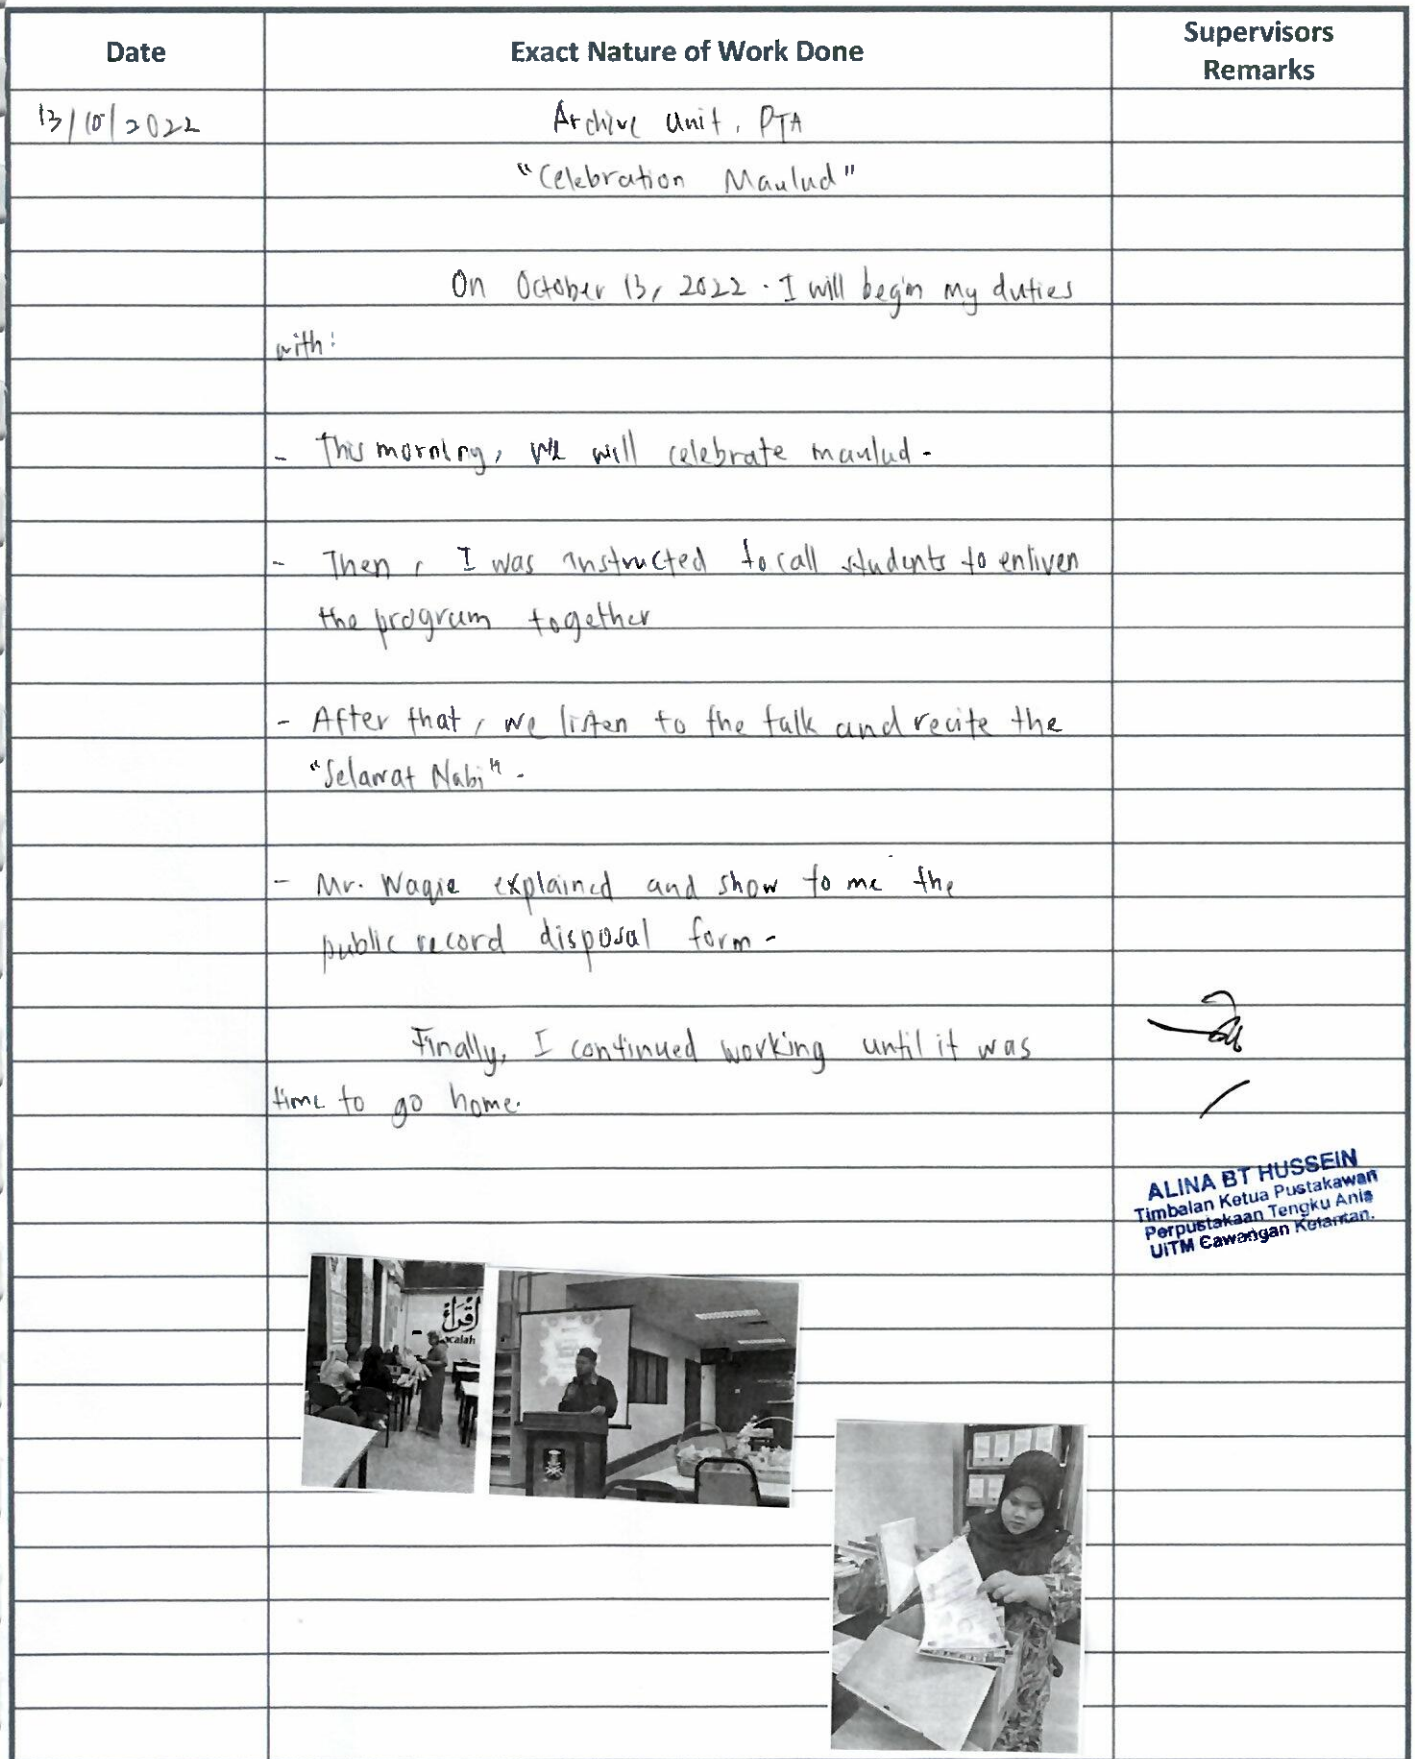 Date
Exact Nature of Work Done
Supervisors
Remarks
13/10/2022
Archive Unit, PTA
"Celebration Maulud"
On October 13, 2022. I will begin my duties
with:
- This morning, we will celebrate maulud.
- Then, I was instructed to call students to enliven
the program together
- After that, we listen to the talk and recite the
"Selawat Nabi".
- Mr. Waqie explained and show to me the
public record disposal form.
Finally, I continued working until it was
time to go home.
ALINA BT HUSSEIN
Timbalan Ketua Pustakawan
Perpustakaan Tengku Anis
UiTM Cawangan Kelantan.
اقرأ